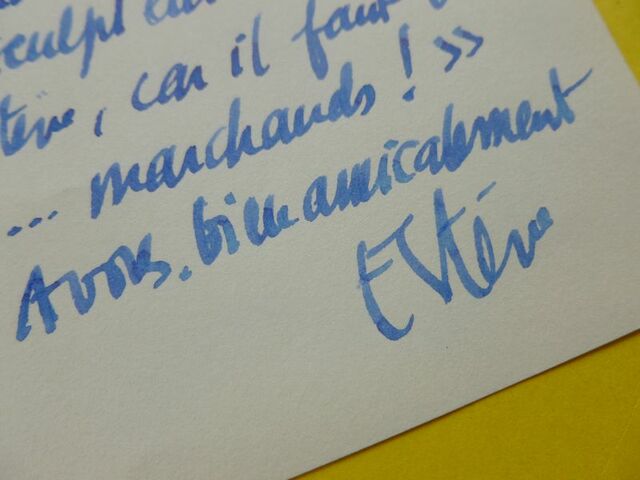 sculpt
, car il faut
... marchands ! »
A vous, bien amicalement
Estève